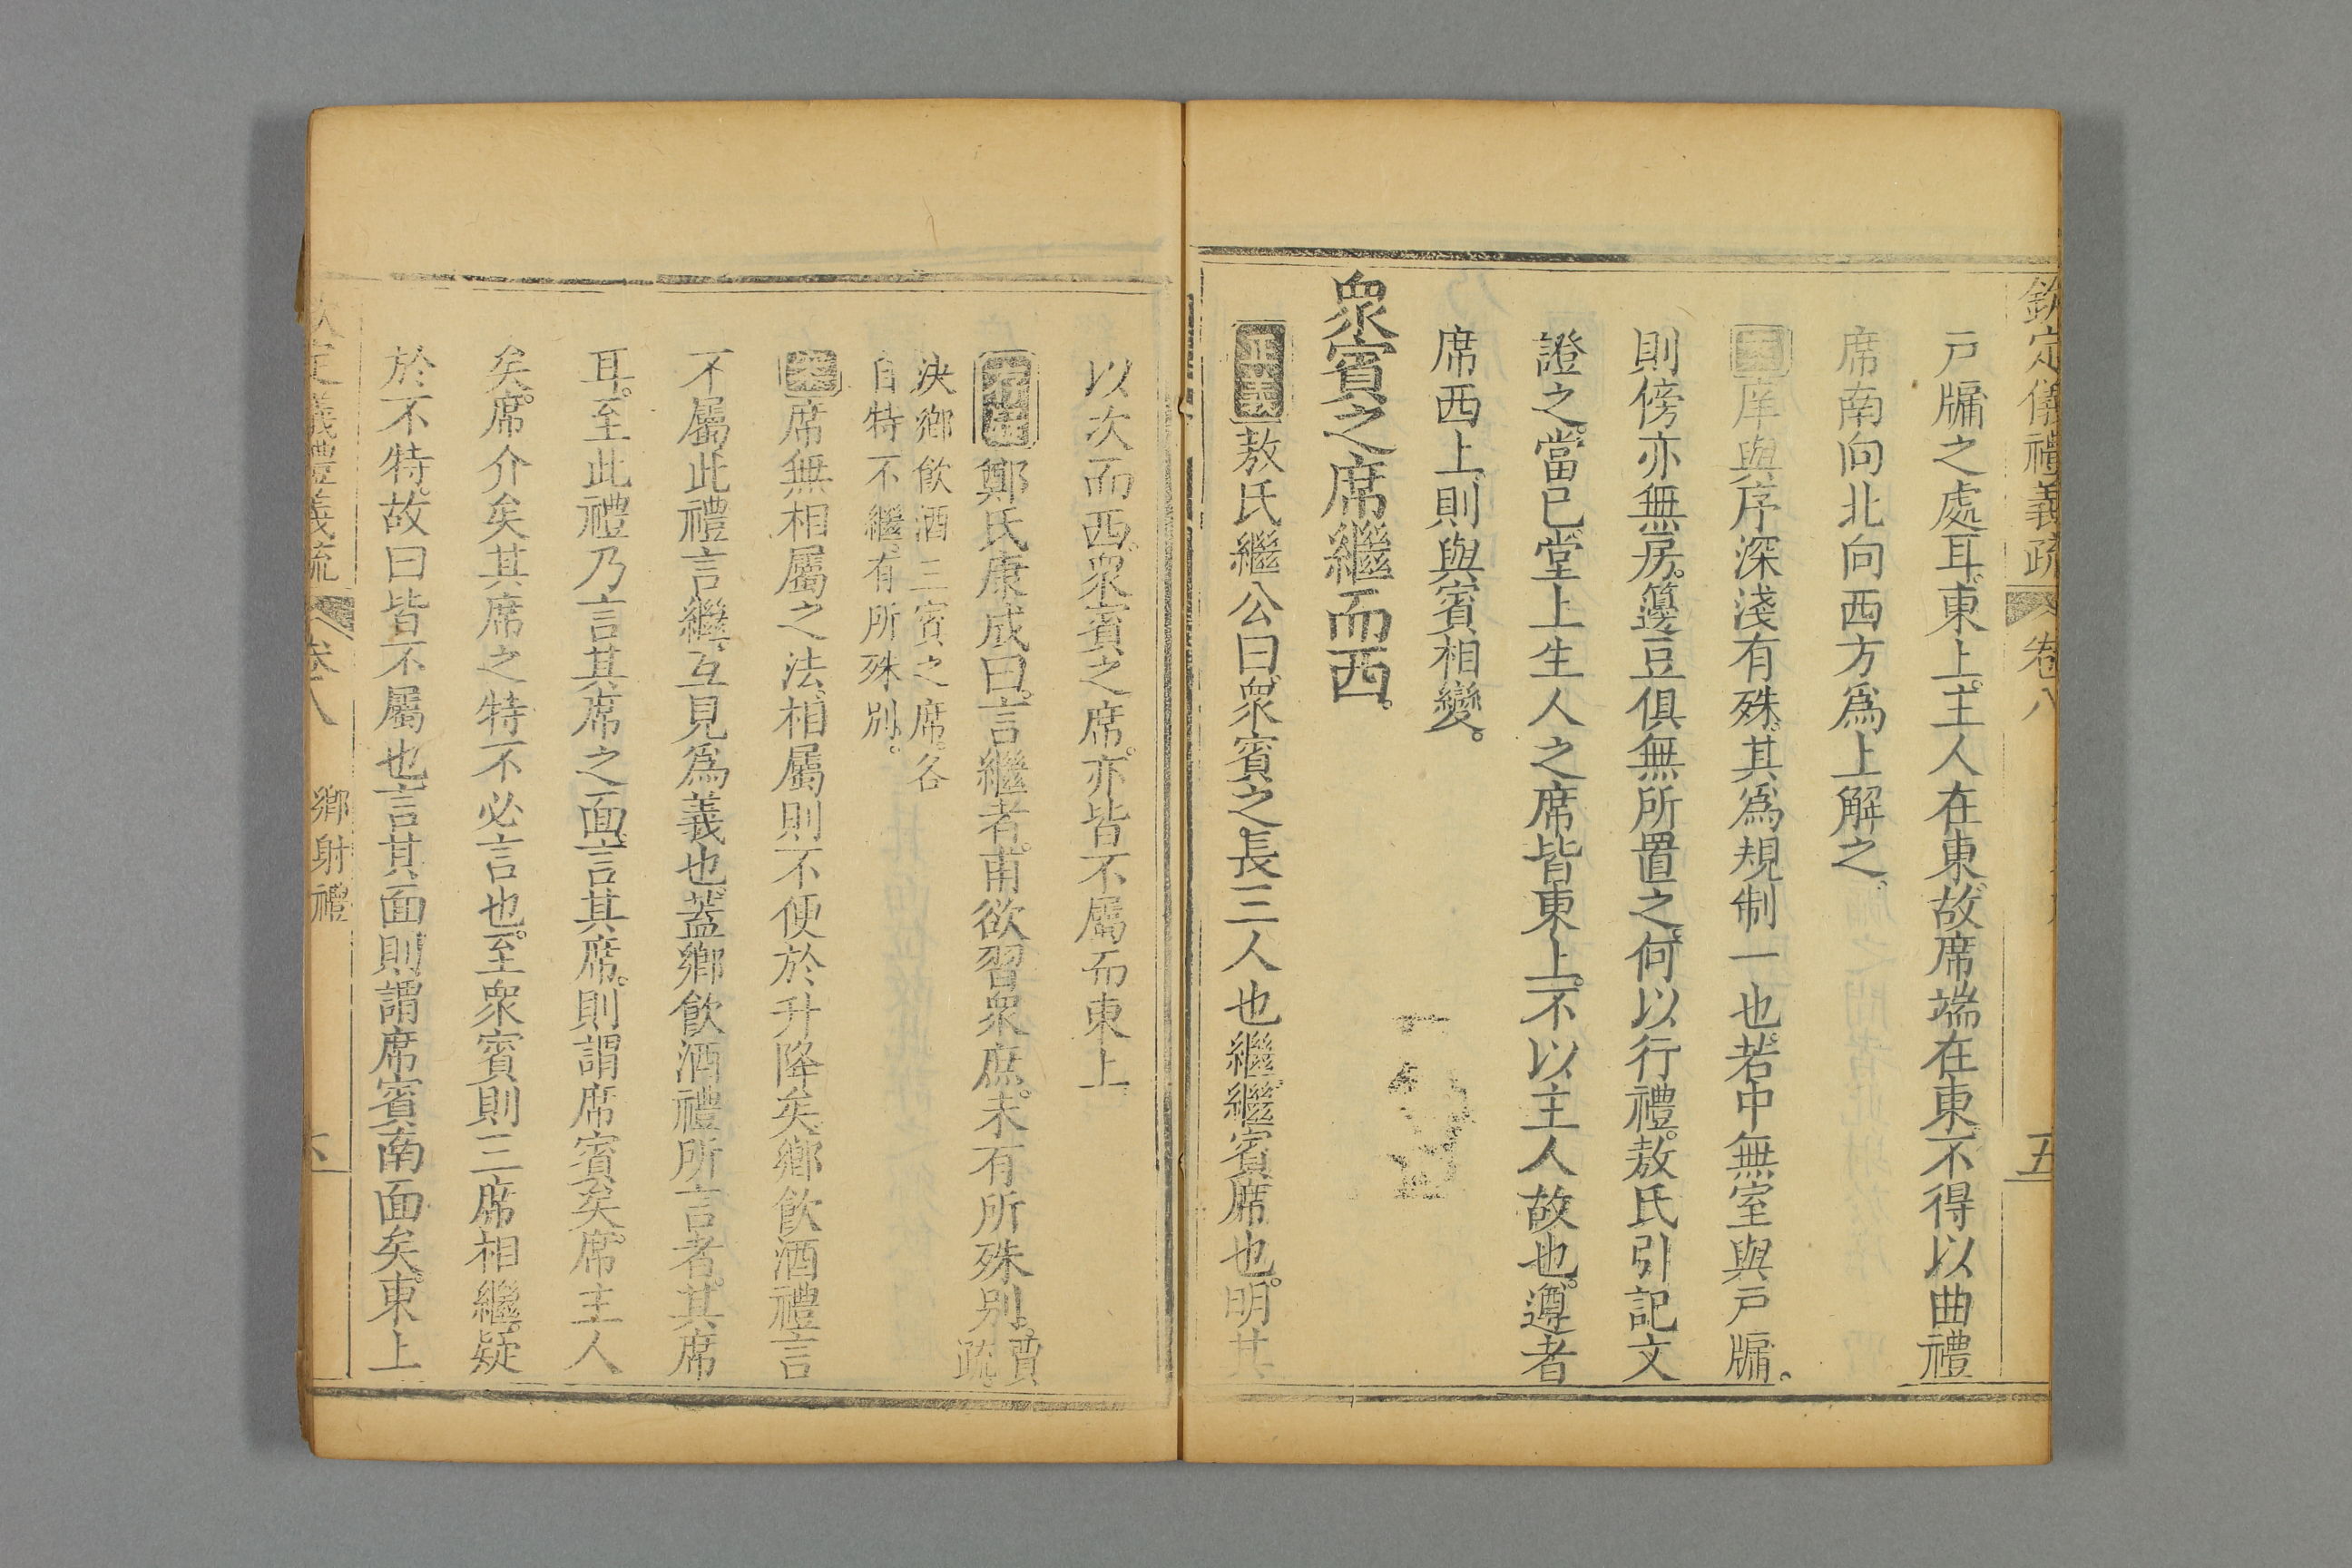 欽定儀禮義疏 卷八 五
戸牖之處耳東上主人在東故席端在東不得以曲禮
席南向北向西方爲上解之
案庠與序深淺有殊其爲規制一也若中無室與戸牖
則傍亦無房籩豆俱無所置之何以行禮敖氏引記文
證之當已堂上生人之席皆東上不以主人故也遵者
席西上則與賓相變
衆賓之席繼而西
正義敖氏繼公曰衆賓之長三人也繼繼賓席也明其
以次而西衆賓之席亦皆不屬而東上
存疑鄭氏康成曰言繼者甫欲習衆庶未有所殊別賈疏
決鄉飲酒三賓之席各
自特不繼有所殊別
案席無相屬之法相屬則不便於升降矣鄉飲酒禮言
不屬此禮言繼互見爲義也蓋鄉飲酒禮所言者其席
耳至此禮乃言其席之面言其席則謂席賓矣席主人
矣席介矣其席之特不必言也至衆賓則三席相繼疑
於不特故曰皆不屬也言其面則謂席賓南面矣東上
欽定儀禮義疏 卷八 鄉射禮 六